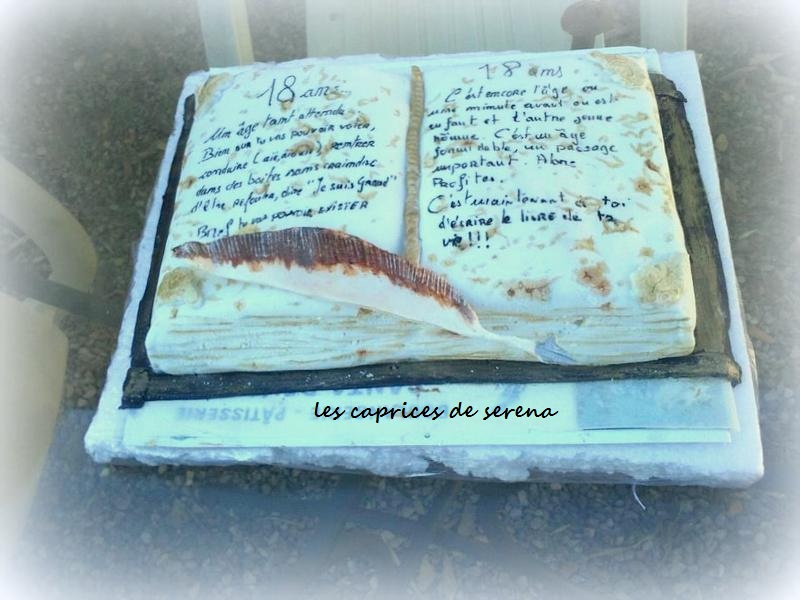 18 ans
Un âge tant attendu
Bien sur tu vas pouvoir voter,
conduire (aïe, aïe, aïe) rentrer
dans des boites sans craindre
d'être refoulée, dire "Je suis Grand"
Bref tu vas pouvoir EXISTER
18 ans
C'est encore l'âge ou
une minute avant on est
enfant et l'autre jeune
homme. C'est un âge
formidable, un passage
important. Alors
Profites.
C'est maintenant a toi
d'écrire le livre de ta
vie !!!
PÂTISSERIE
les caprices de serena